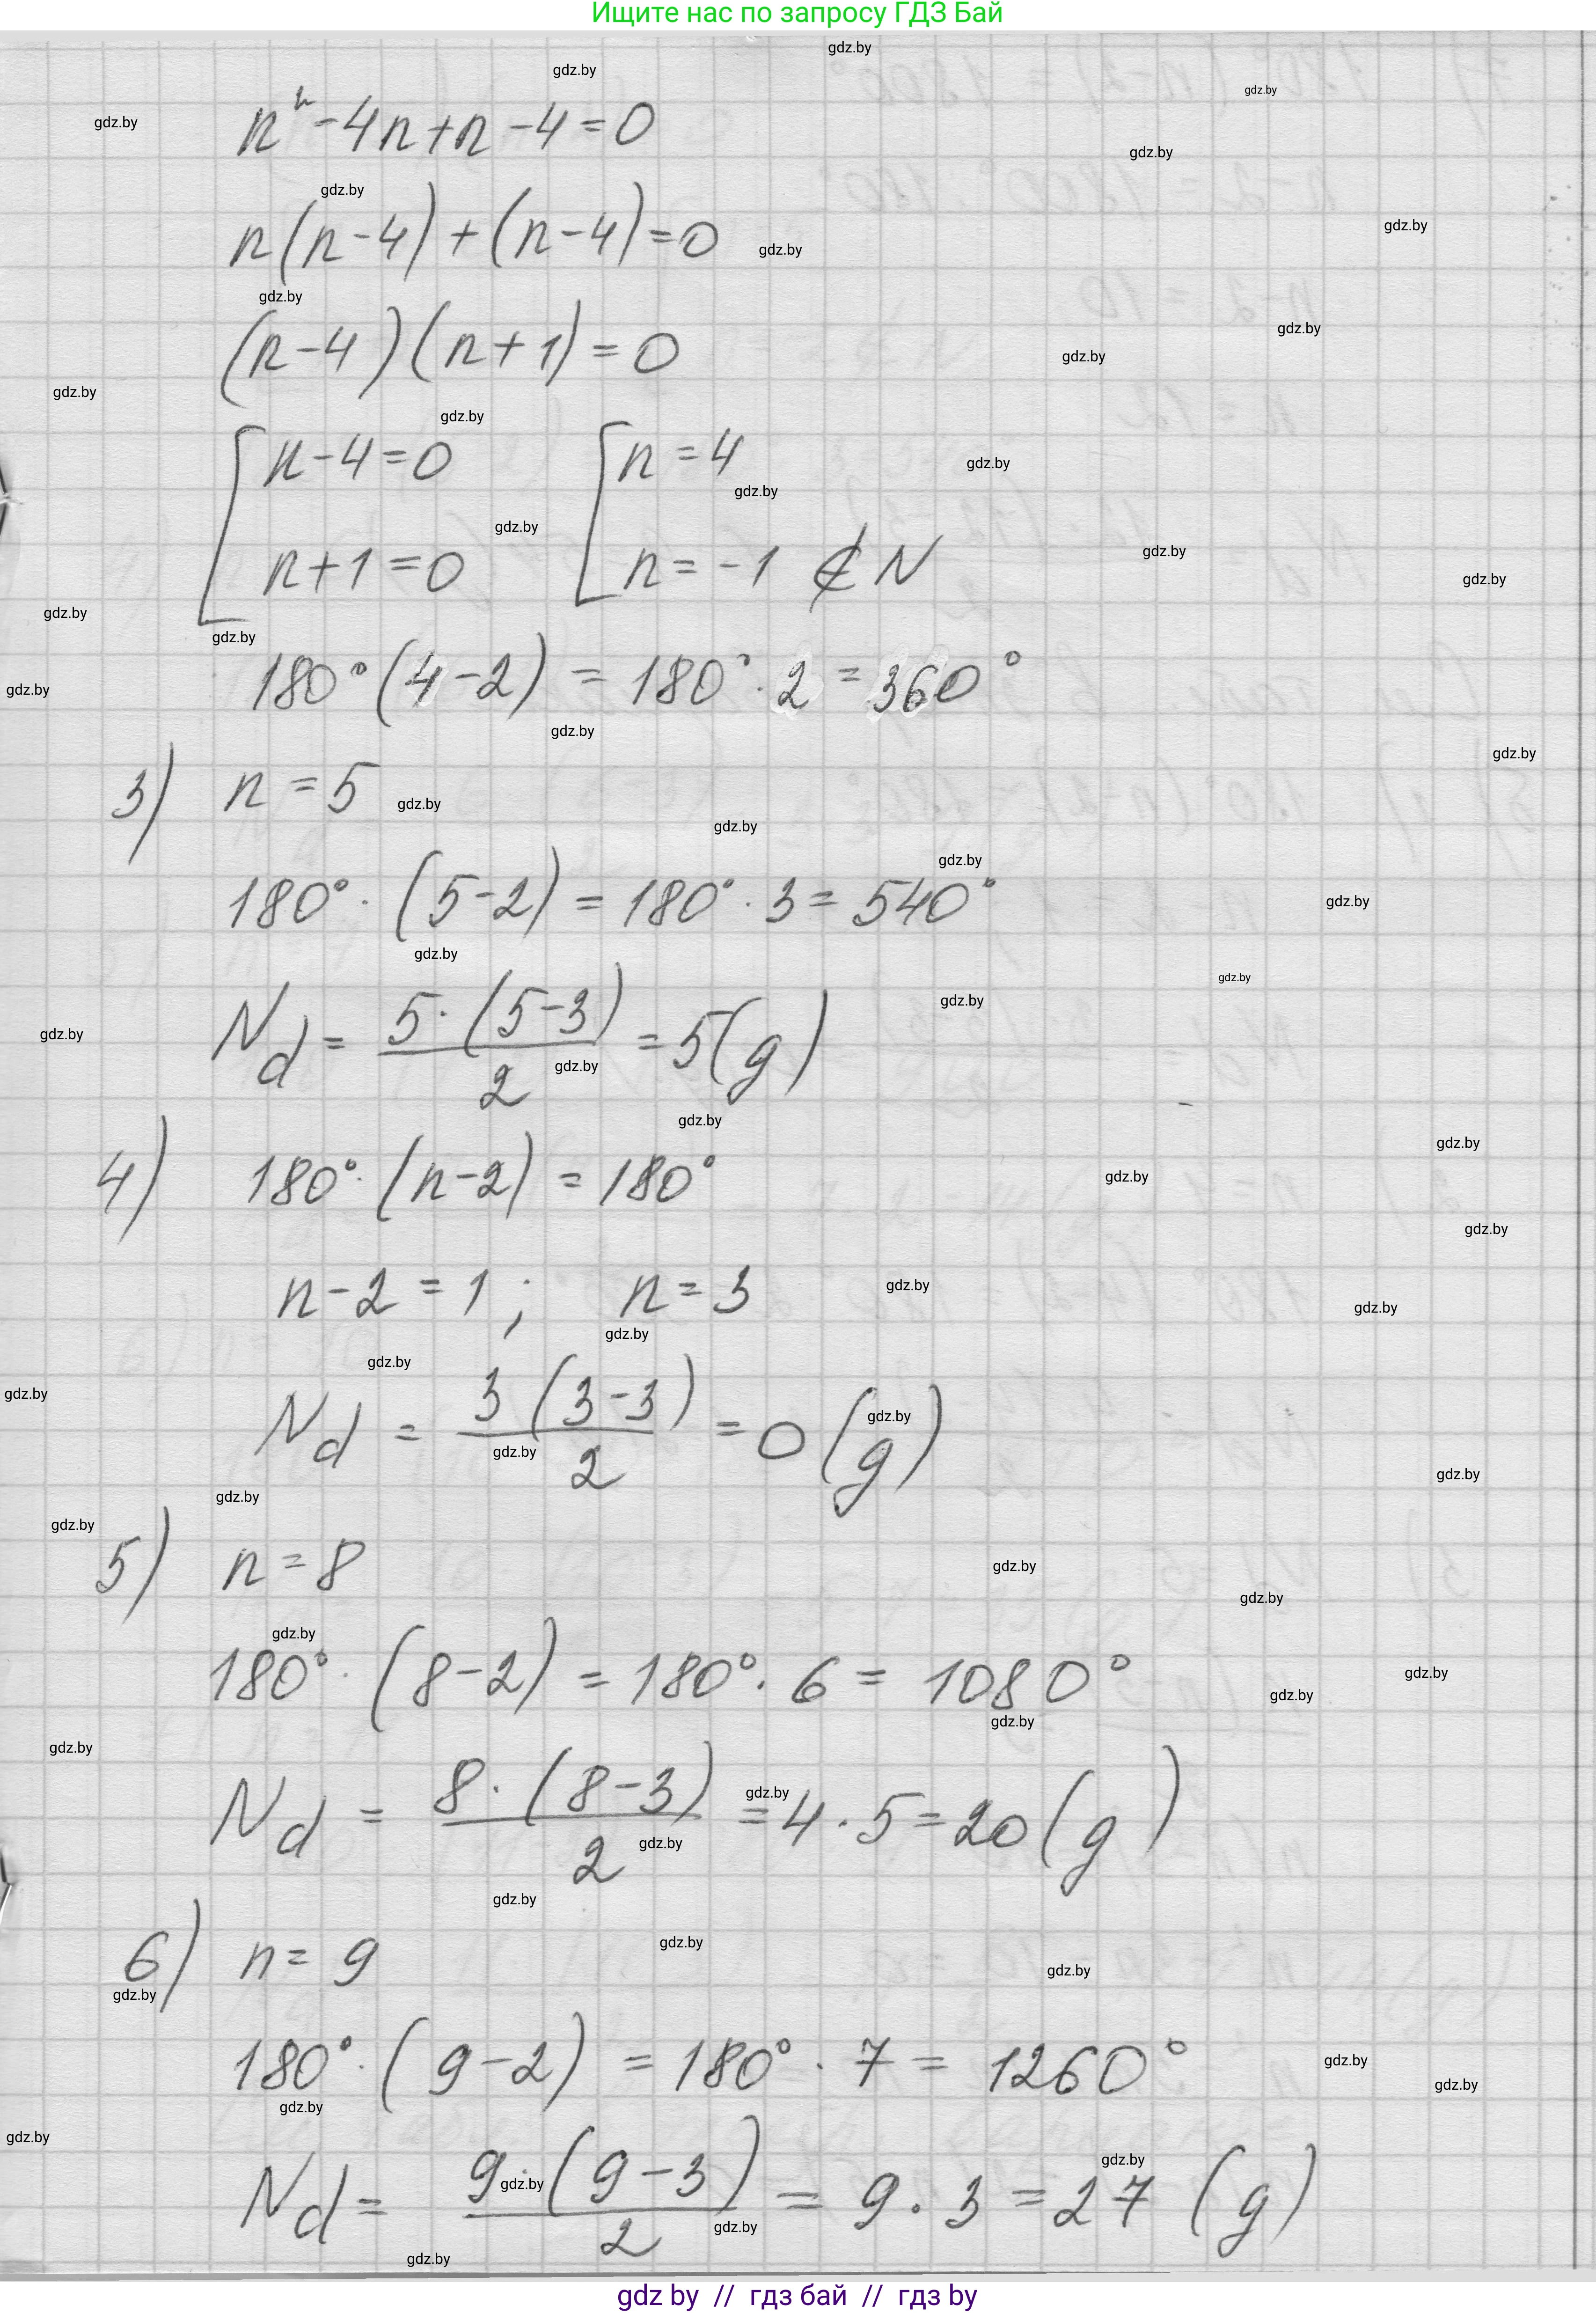 Ищите нас по запросу ГДЗ Бай
n² - 4n + n - 4 = 0
n(n - 4) + (n - 4) = 0
(n - 4)(n + 1) = 0
[n - 4 = 0 [n = 4
n + 1 = 0 n = -1 ∉ N
180°(4 - 2) = 180° · 2 = 360°
3) n = 5
180° · (5 - 2) = 180° · 3 = 540°
N_d = 5 · (5 - 3) / 2 = 5 (g)
4) 180° · (n - 2) = 180°
n - 2 = 1; n = 3
N_d = 3(3 - 3) / 2 = 0 (g)
5) n = 8
180° · (8 - 2) = 180° · 6 = 1080°
N_d = 8 · (8 - 3) / 2 = 4 · 5 = 20 (g)
6) n = 9
180° · (9 - 2) = 180° · 7 = 1260°
N_d = 9 · (9 - 3) / 2 = 9 · 3 = 27 (g)
gdz by // гдз бай // гдз by